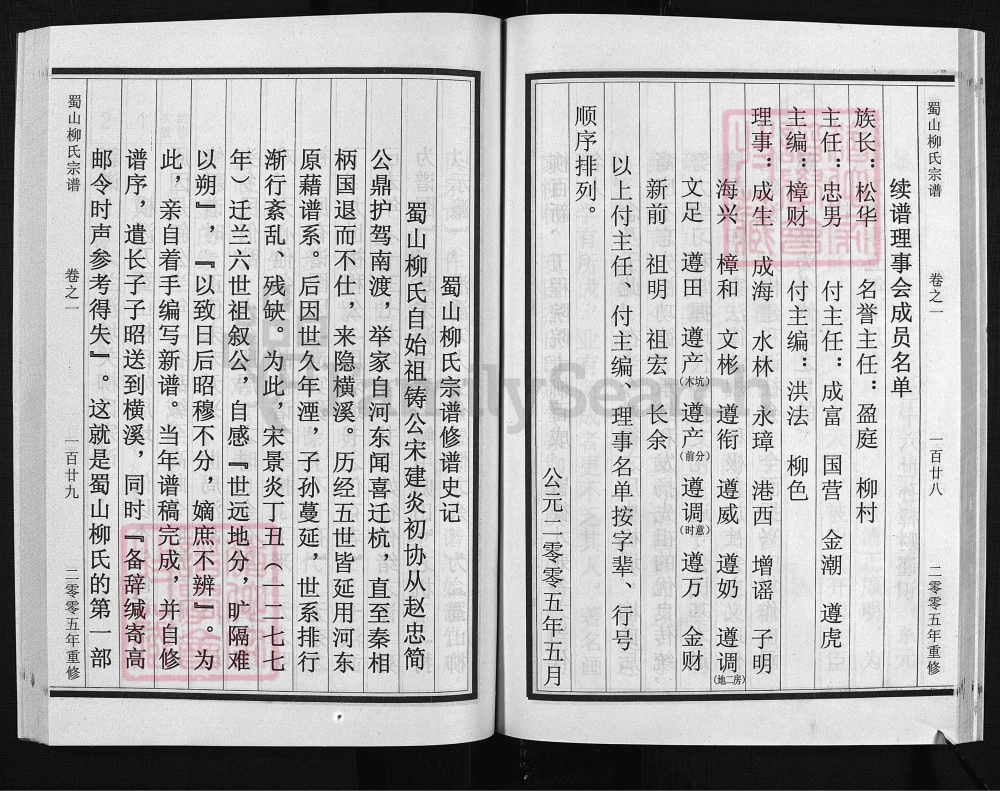 蜀山柳氏宗谱 卷之一 一百廿八 二零零五年重修
续谱理事会成员名单
族长：松华 名誉主任：盈庭 柳村
主任：忠男 付主任：成富 国营 金潮 遵虎
主编：樟财 付主编：洪法 柳色
理事：成生 成海 水林 永璋 港西 增谣 子明
海兴 樟和 文彬 遵衔 遵威 遵奶 遵调(地二房)
文足 遵田 遵产(木坑) 遵产(前分) 遵调(时意) 遵万 金财
新前 祖明 祖宏 长余
以上付主任、付主编、理事名单按字辈、行号
顺序排列。
公元二零零五年五月
蜀山柳氏宗谱修谱史记
蜀山柳氏自始祖铸公宋建炎初协从赵忠简
公鼎护驾南渡，举家自河东闻喜迁杭，直至秦相
柄国退而不仕，来隐横溪。历经五世皆延用河东
原藉谱系。后因世久年湮，子孙蔓延，世系排行
渐行紊乱、残缺。为此，宋景炎丁丑（一二七七
年）迁兰六世祖叙公，自感『世远地分，旷隔难
以朔』，『以致日后昭穆不分，嫡庶不辨』。为
此，亲自着手编写新谱。当年谱稿完成，并自修
谱序，遣长子子昭送到横溪，同时『备辞缄寄高
邮令时声参考得失』。这就是蜀山柳氏的第一部
蜀山柳氏宗谱 卷之一 一百廿九 二零零五年重修